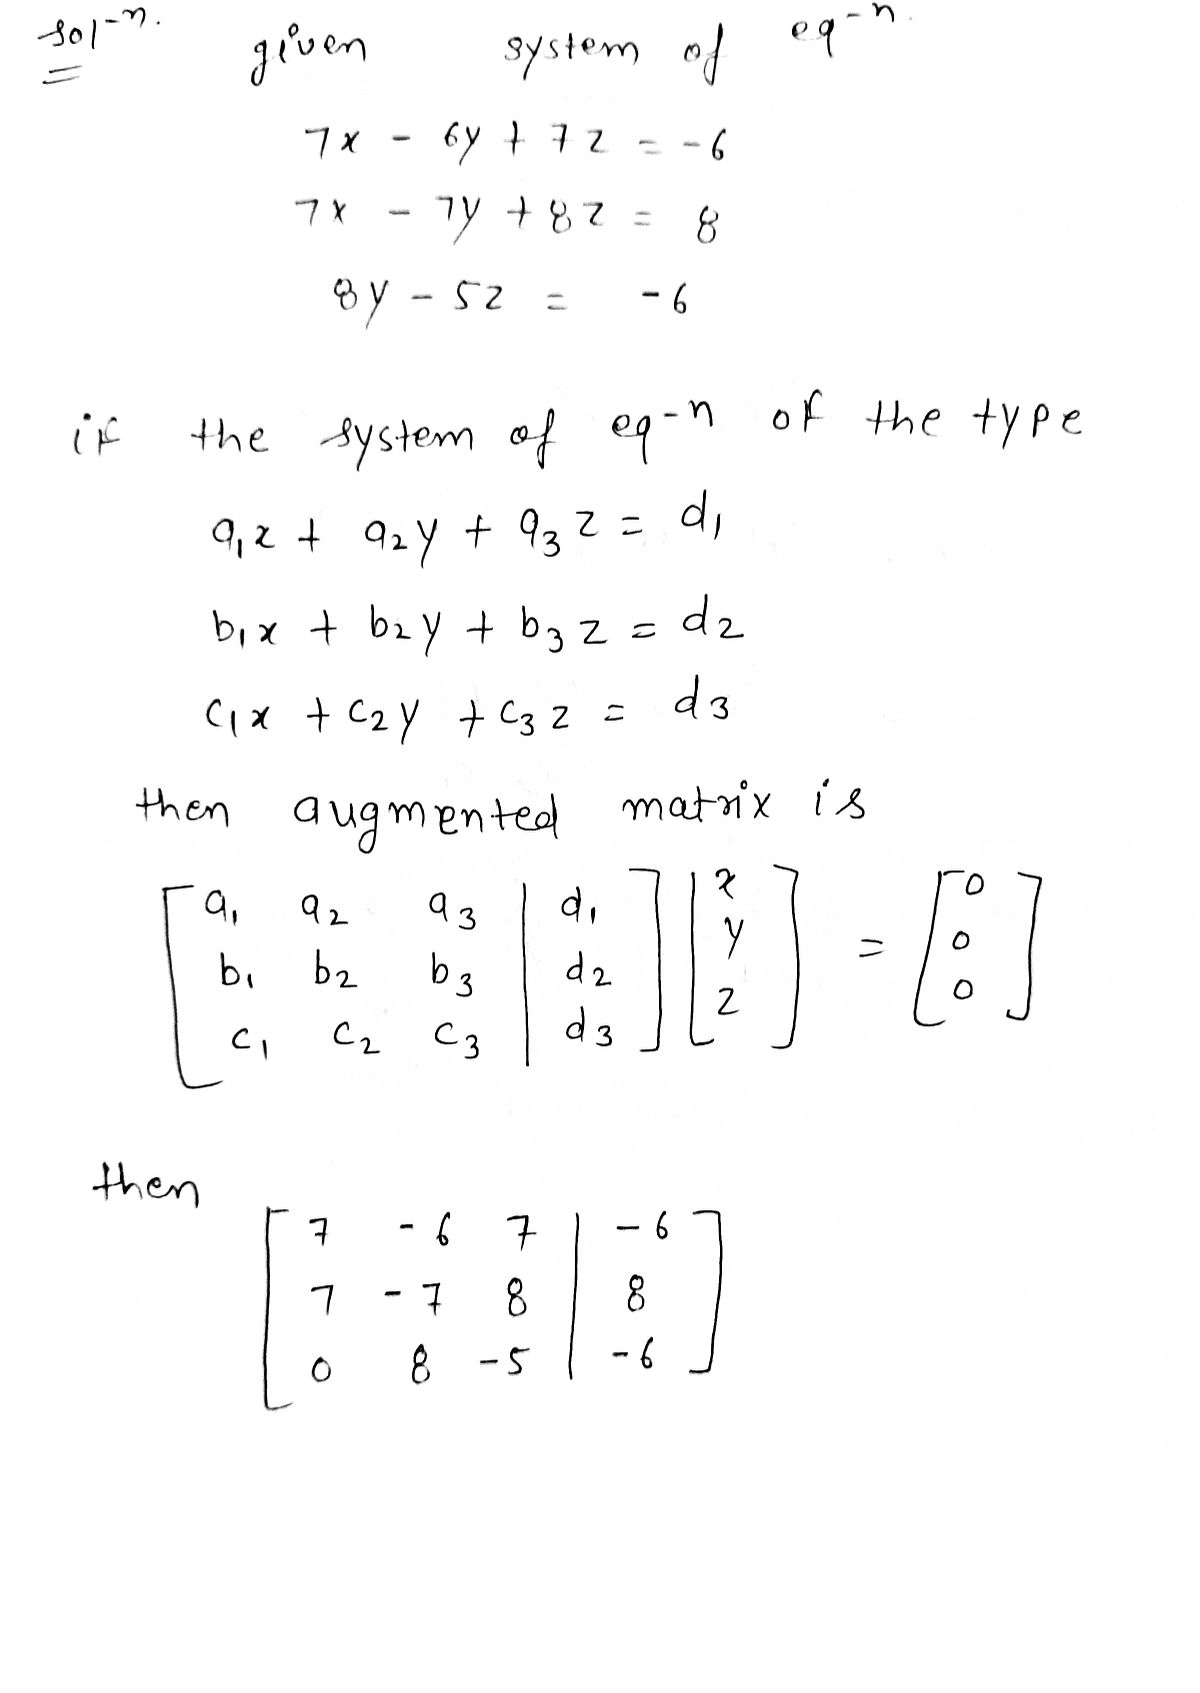 sol-n. given system of eq-n.
7x - 6y + 7z = -6
7x - 7y + 8z = 8
8y - 5z = -6
if the system of eq-n of the type
a₁x + a₂y + a₃z = d₁
b₁x + b₂y + b₃z = d₂
c₁x + c₂y + c₃z = d₃
then augmented matrix is
[ a₁ a₂ a₃ | d₁ ] [ x ] = [ 0 ]
[ b₁ b₂ b₃ | d₂ ] [ y ] [ 0 ]
[ c₁ c₂ c₃ | d₃ ] [ z ] [ 0 ]
then
[ 7 -6 7 | -6 ]
[ 7 -7 8 | 8 ]
[ 0 8 -5 | -6 ]